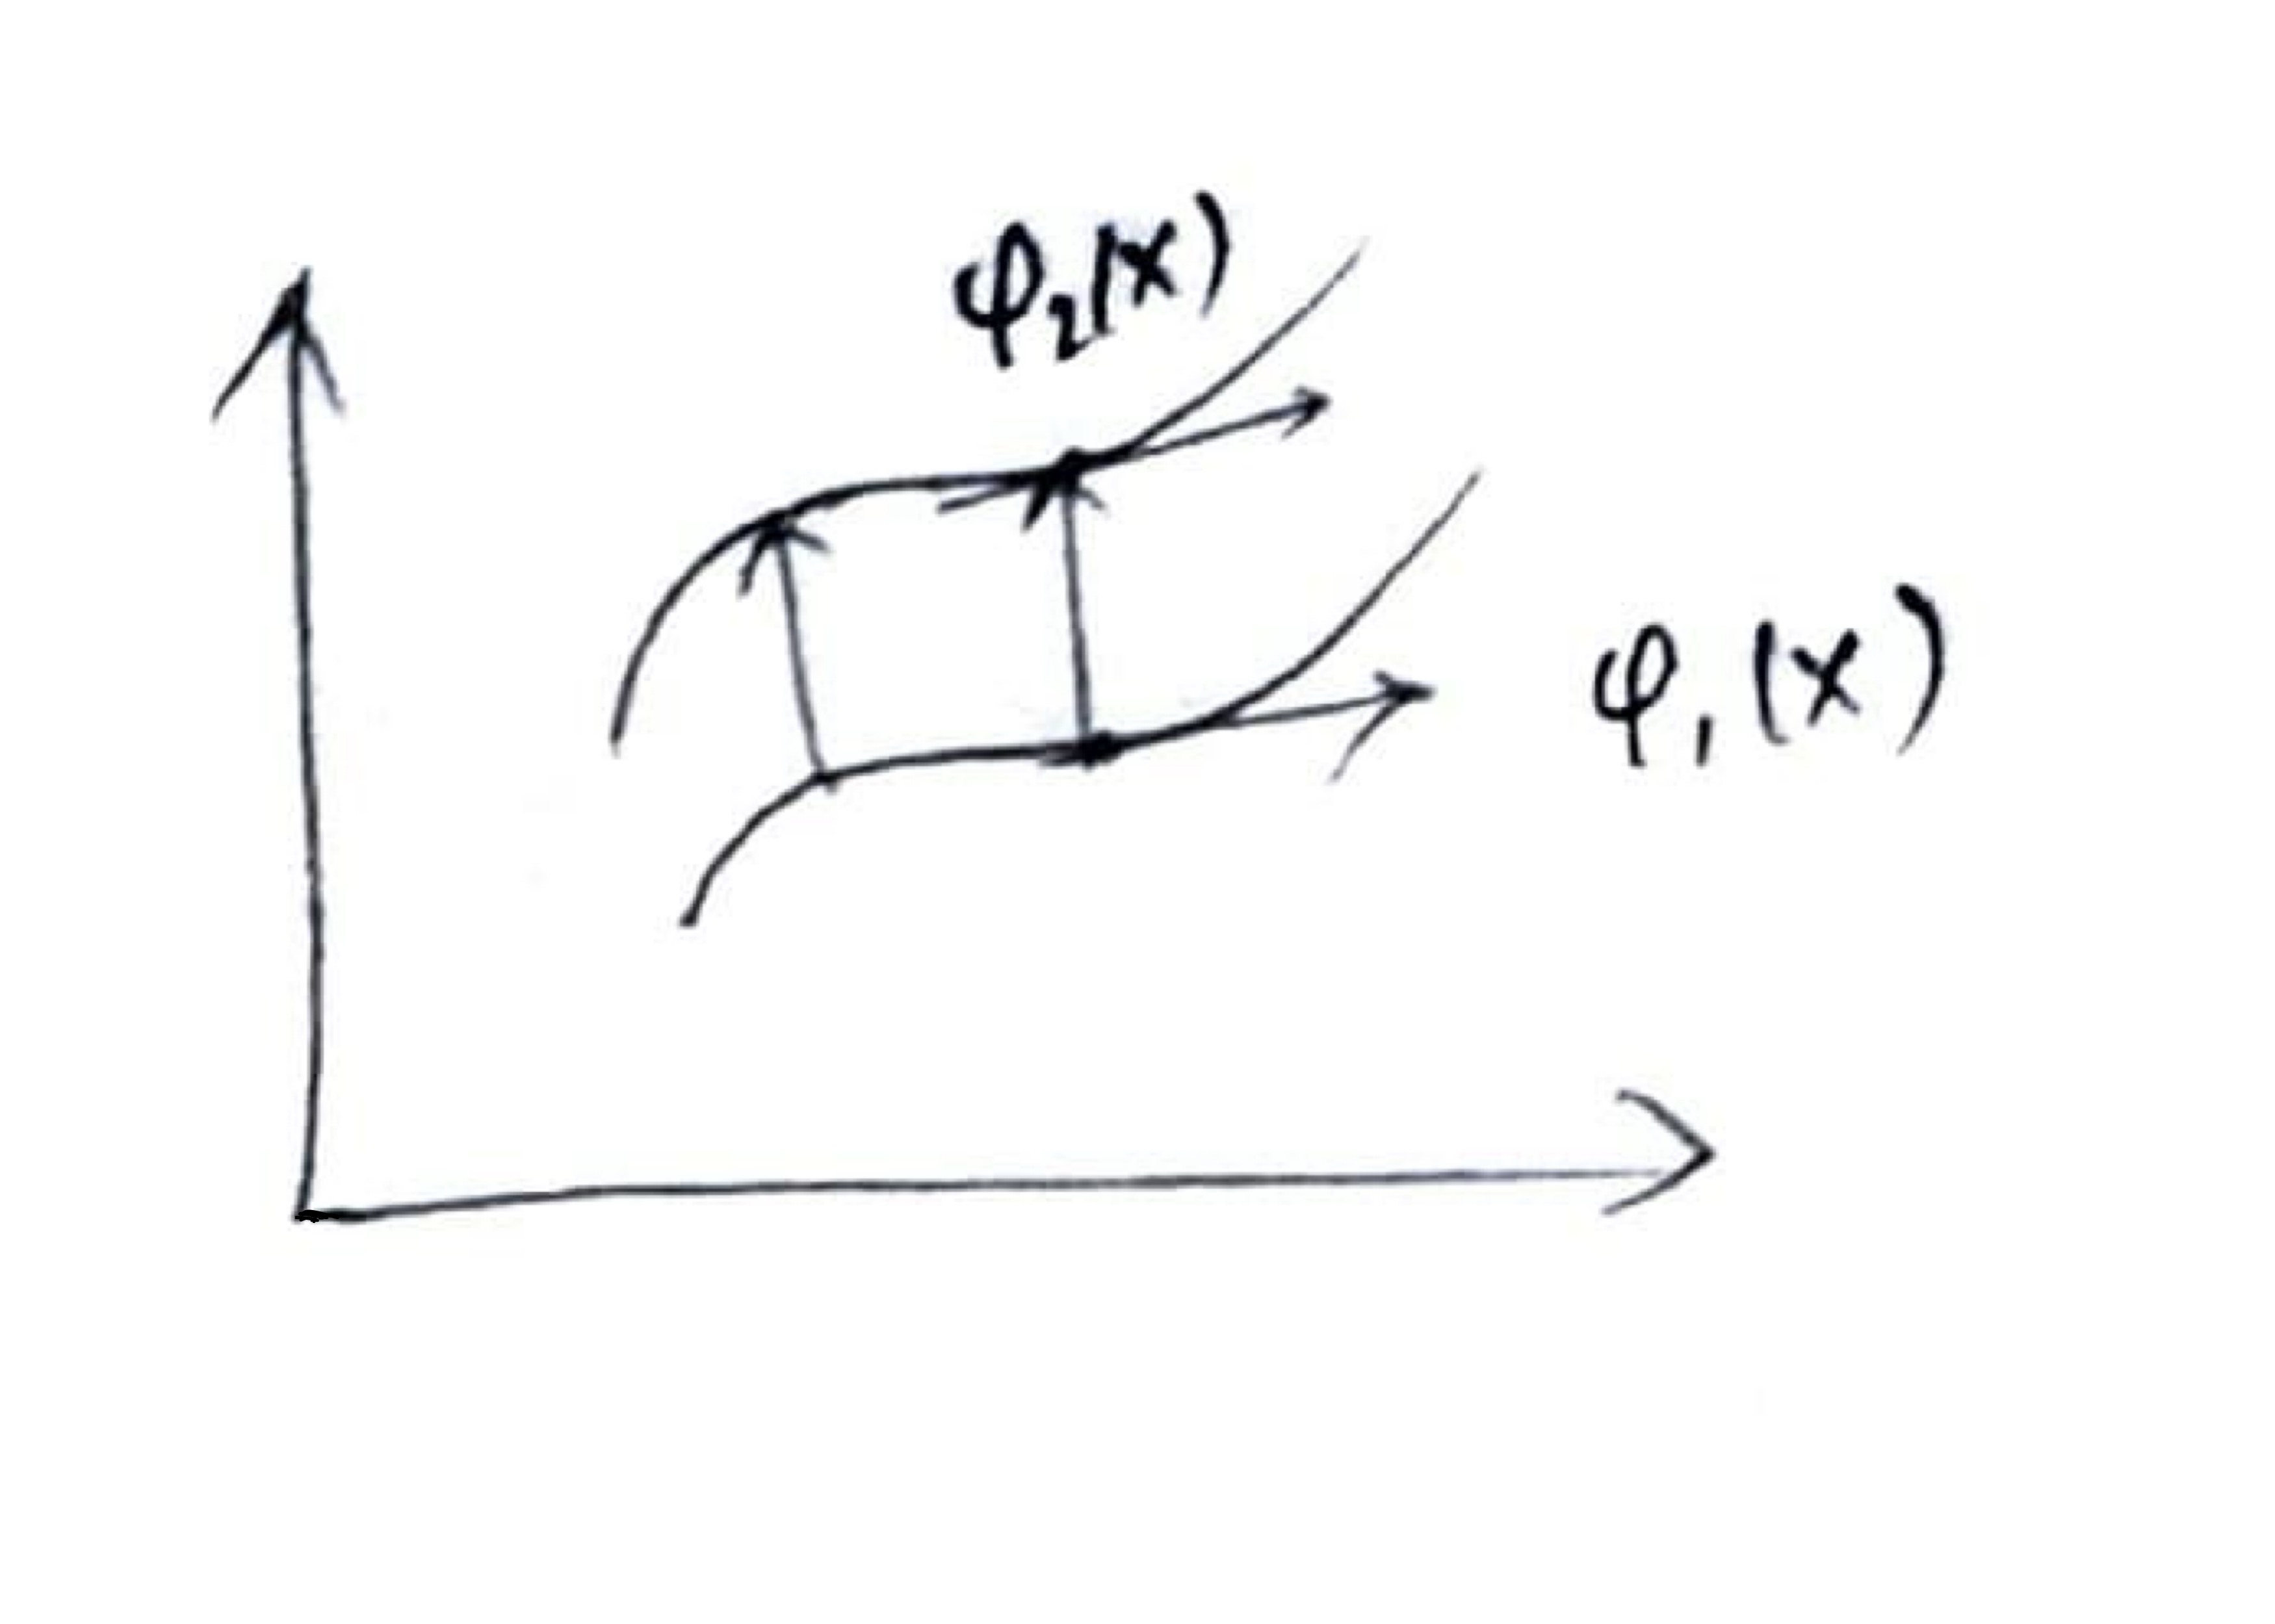 φ₂(x)
φ₁(x)